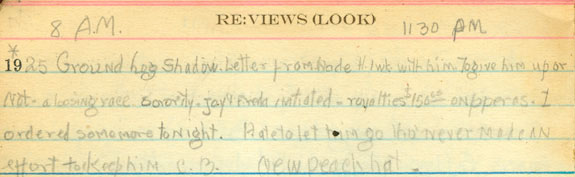 RE:VIEWS (LOOK)
8 A.M. 1130 PM
* 1925 Ground hog Shadow. Letter from with him. To give him up or
Not - a loosing race. Sorority - initiated - royalties $150.00 on I
ordered some more tonight. Hate to let him go tho' never make AN
effort to keep him C.B. New Peach hat.